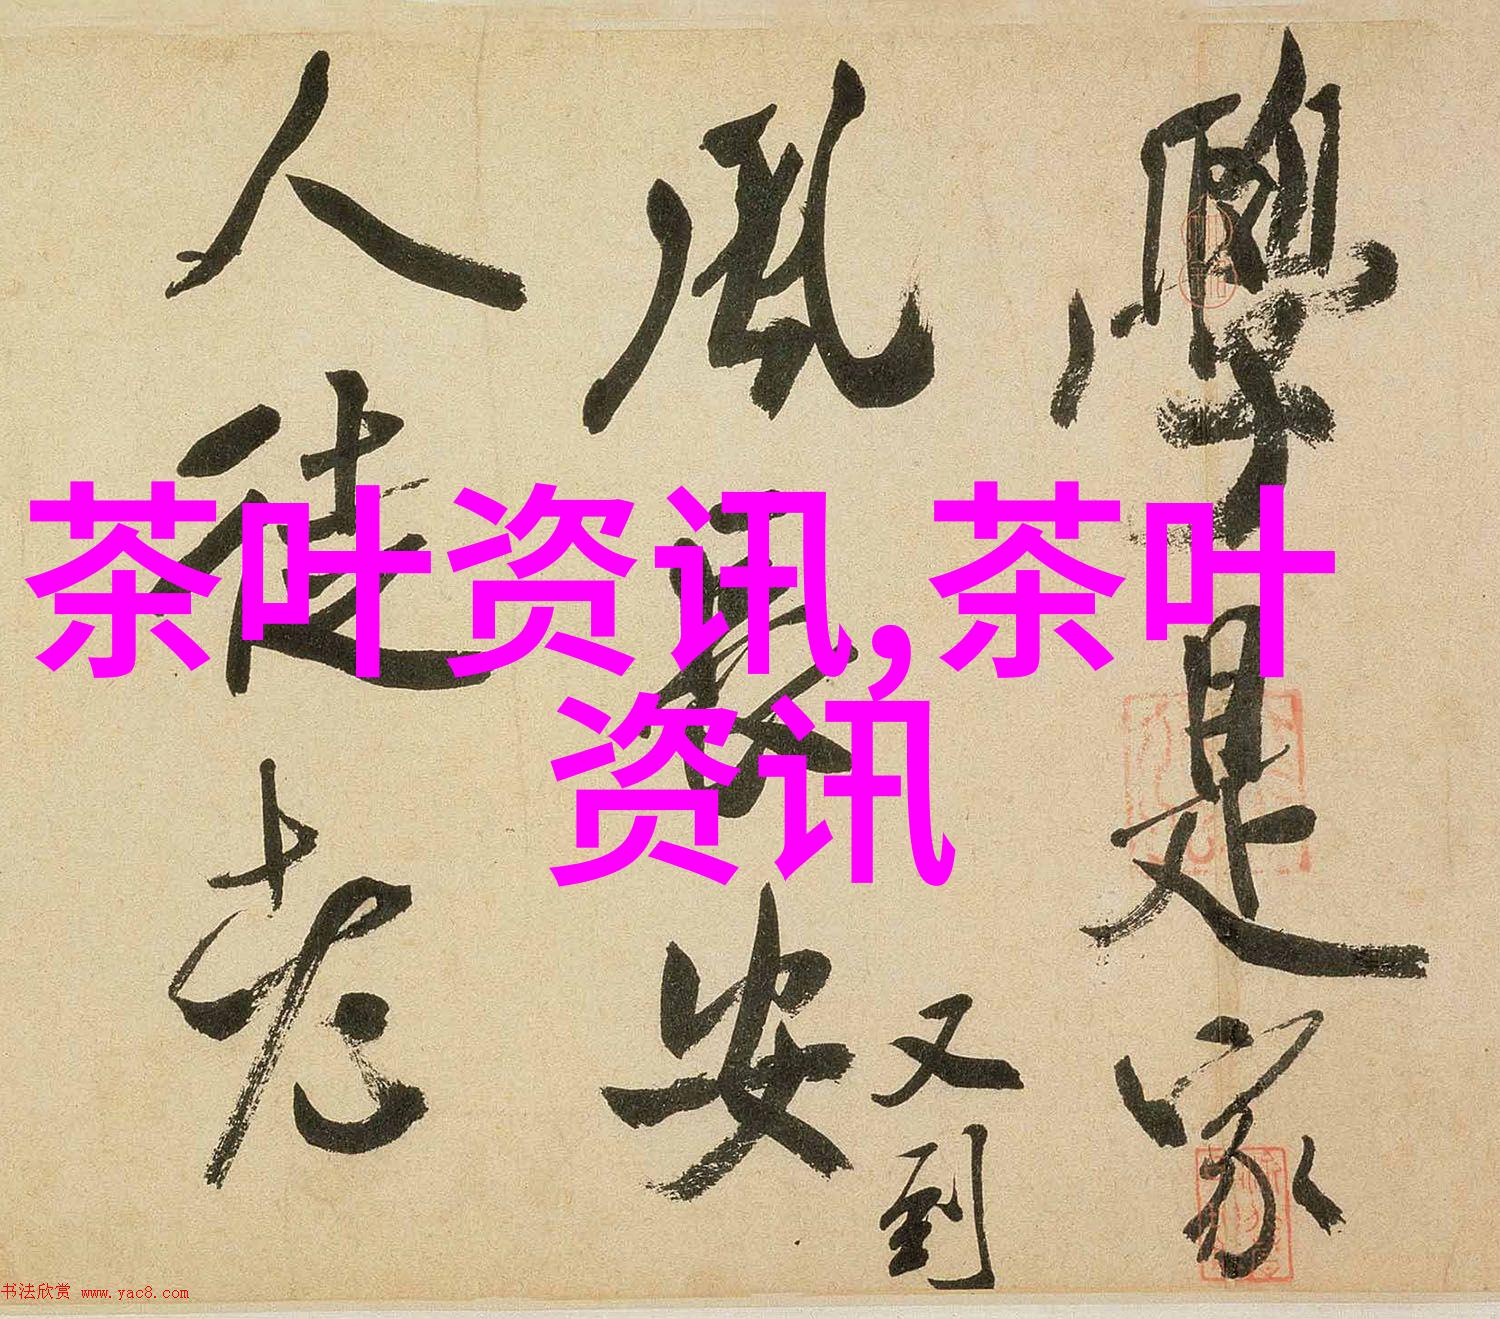 學是家
風長安
又到
人徒老
茶叶资讯,茶叶
资讯
书法欣赏 www.yac8.com